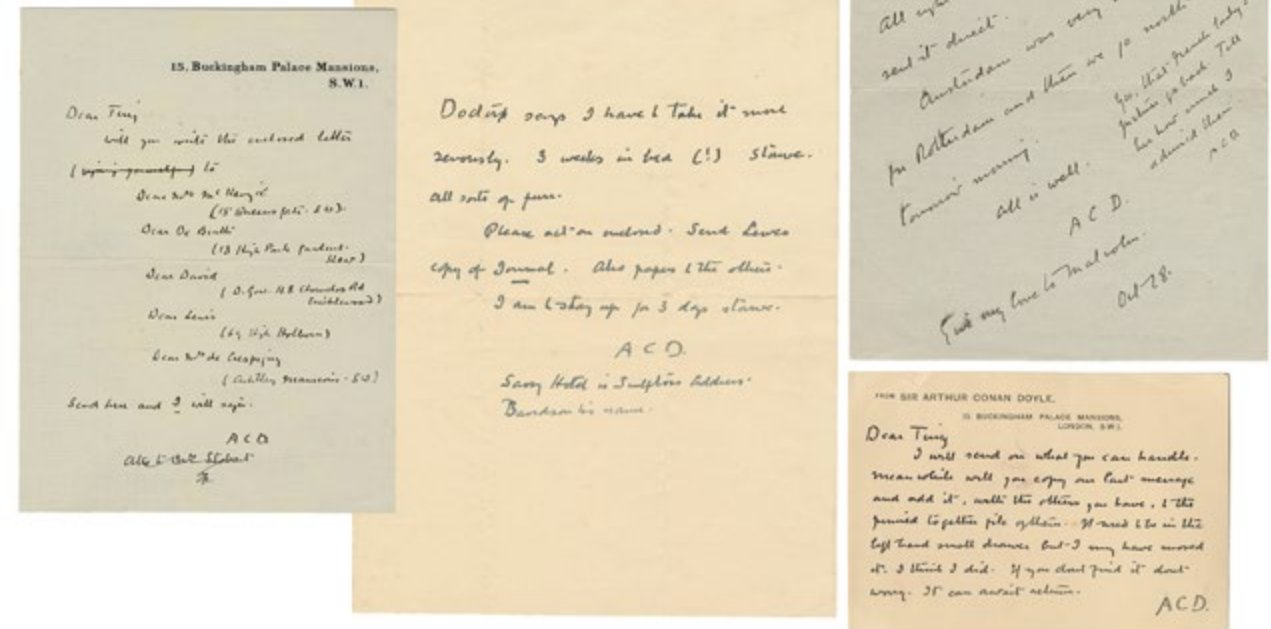 15, Buckingham Palace Mansions,
S.W.1.
Dear Ting
will you write the enclosed letter
to
Dear Mrs McKenzie
Dear De Brath
Dear David
Dear Lewis
(69 High Holborn)
Dear Mrs de Crespigny
(Artillery Mansions - SW)
Send here and I will sign.
A C D
Doctor says I have to take it more
seriously. 3 weeks in bed (!) Starve.
All sorts of
Please act on enclosed. Send Lewes
copy of Journal. Also papers to the others.
I am to stay up for 3 days starve.
A C D.
Savoy Hotel is Sculptors Address.
Davidson his name.
All
send it direct.
Amsterdam was very
for Rotterdam and then we go north
tomorrow morning.
All is well.
A C D.
Give my love to Malcolm.
Oct 28.
Yes, that French lady's
pictures go back. Tell
her how much I
admired them
A C D
FROM SIR ARTHUR CONAN DOYLE,
15 BUCKINGHAM PALACE MANSIONS,
LONDON, S.W.1.
Dear Ting
I will send on what you can handle.
Meanwhile will you copy our last message
and add it, with the others you have, to the
pinned together pile of them. It used to be in the
left hand small drawer but I may have moved
it. I think I did. If you dont find it dont
worry. It can await return.
A C D.